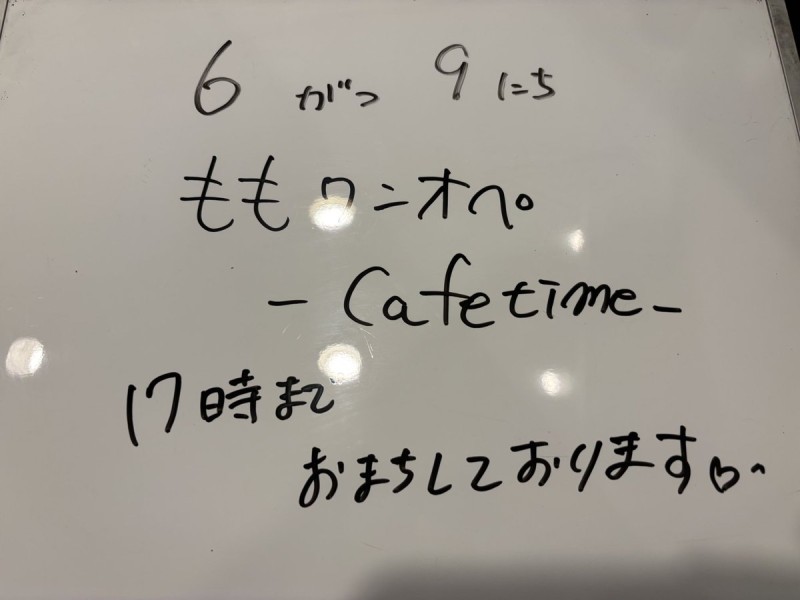 6がつ9にち
ももワンオペ
-Cafetime-
17時まで
おまちしております♡